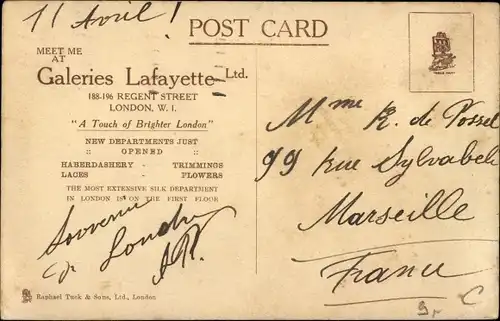 11 Avril !
POST CARD
MEET ME
AT
Galeries Lafayette Ltd.
188-196 REGENT STREET
LONDON, W. I.
"A Touch of Brighter London"
NEW DEPARTMENTS JUST
:: OPENED ::
HABERDASHERY - TRIMMINGS
LACES - FLOWERS
THE MOST EXTENSIVE SILK DEPARTMENT
IN LONDON IS ON THE FIRST FLOOR
Souvenir
de Londres
Raphael Tuck & Sons, Ltd., London
Mme R. de Possel
99 rue Sylvabelle
Marseille
France
C